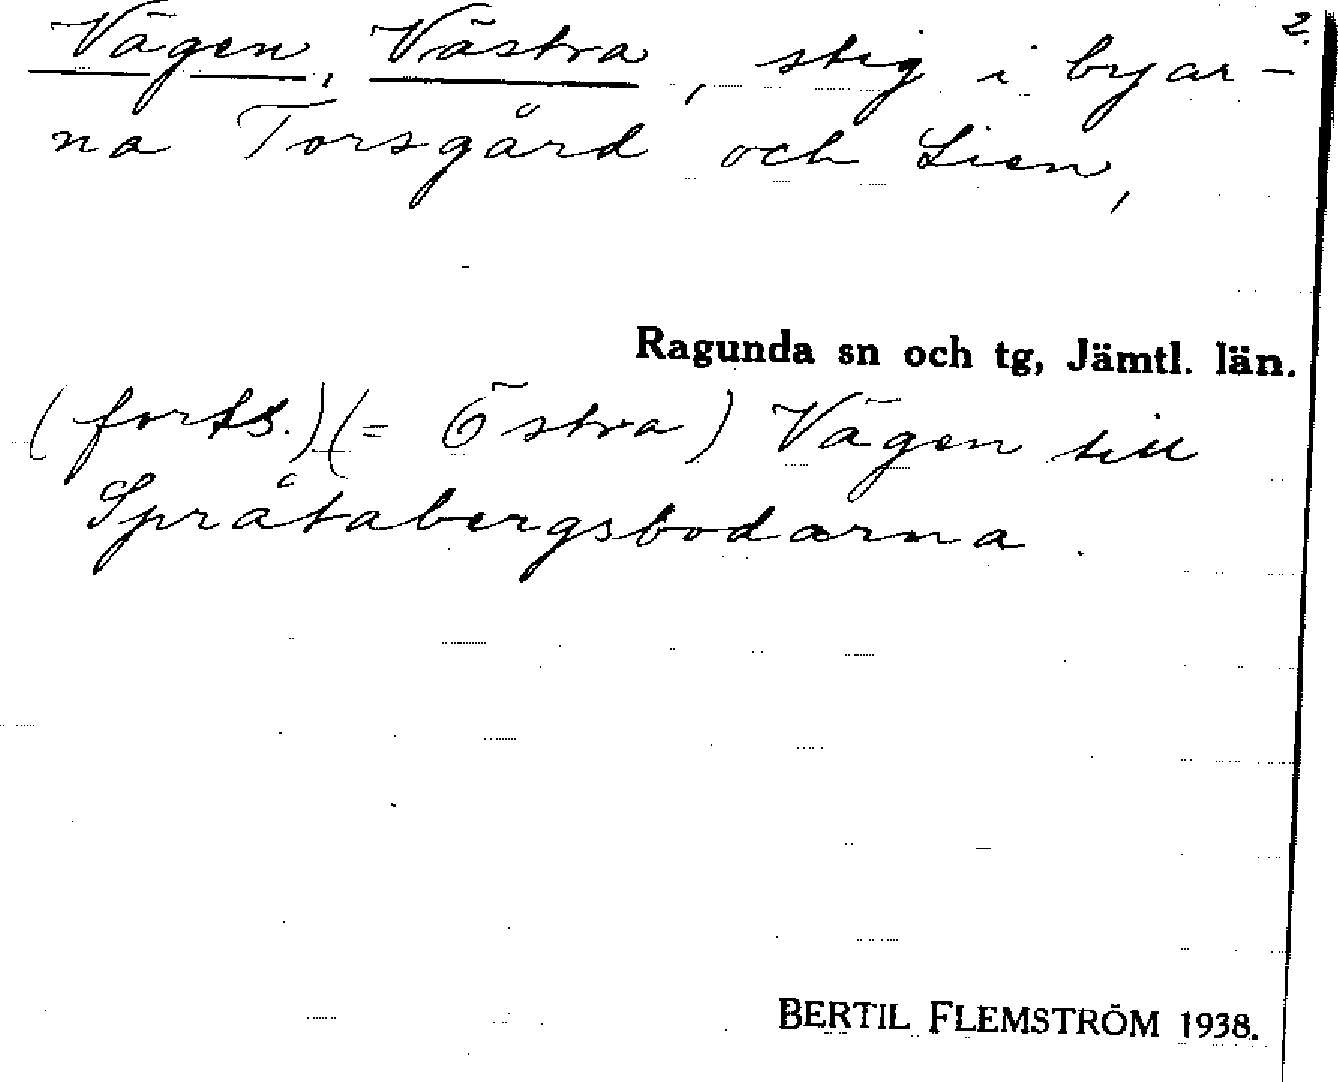 2.
Vägen, Västra, stig i byar-
na Torsgård och Lien,
Ragunda sn och tg, Jämtl. län.
(forts.) (= Östra) Vägen till
Språtabergsbodarna.
BERTIL FLEMSTRÖM 1938.